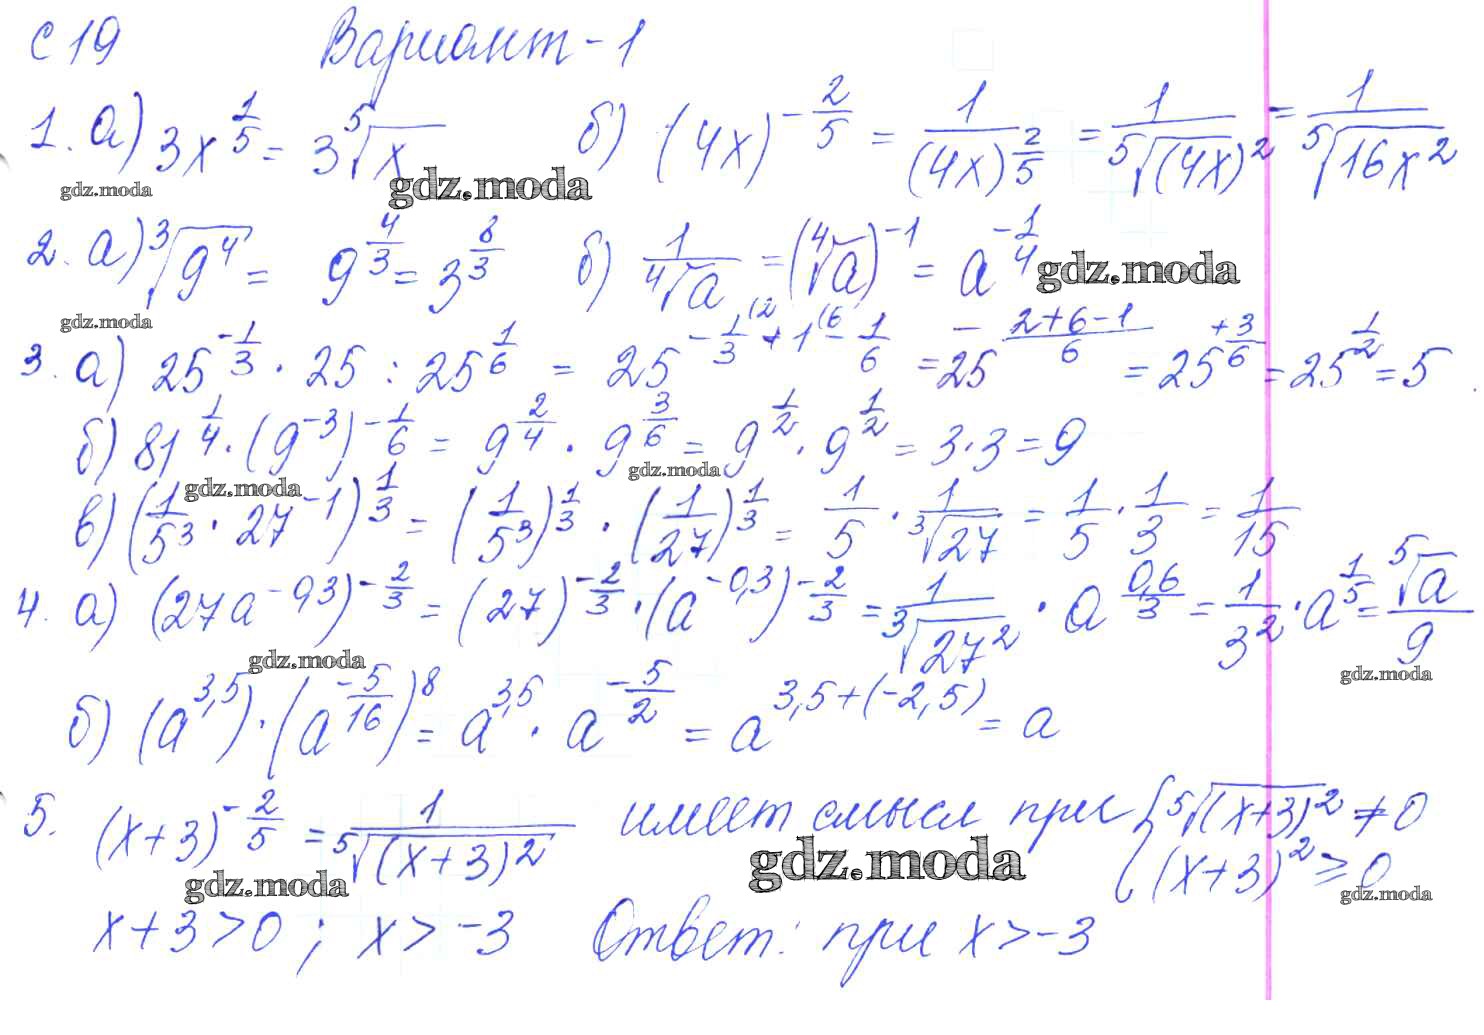 С 19 Вариант - 1
1. а) 3x^{1/5} = 3 ⁵√x б) (4x)^{-2/5} = 1/(4x)^{2/5} = 1/⁵√(4x)² = 1/⁵√16x²
gdz.moda gdz.moda
2. а) ³√9⁴ = 9^{4/3} = 3^{8/3} б) 1/⁴√a = (⁴√a)^{-1} = a^{-1/4} gdz.moda
gdz.moda
3. а) 25^{-1/3} · 25 : 25^{1/6} = 25^{-1/3^{(2} + 1^{(6} - 1/6} = 25^{-(2+6-1)/6} = 25^{+3/6} = 25^{1/2} = 5
б) 81^{1/4} · (9^{-3})^{-1/6} = 9^{2/4} · 9^{3/6} = 9^{1/2} · 9^{1/2} = 3·3 = 9
gdz.moda gdz.moda
в) (1/5³ · 27^{-1})^{1/3} = (1/5³)^{1/3} · (1/27)^{1/3} = 1/5 · 1/³√27 = 1/5 · 1/3 = 1/15
4. а) (27a^{-0,3})^{-2/3} = (27)^{-2/3} · (a^{-0,3})^{-2/3} = 1/³√27² · a^{0,6/3} = 1/3² · a^{1/5} = ⁵√a/9
gdz.moda gdz.moda
б) (a^{3,5}) · (a^{-5/16})^8 = a^{3,5} · a^{-5/2} = a^{3,5+(-2,5)} = a
5. (x+3)^{-2/5} = 1/⁵√(x+3)² имеет смысл при { ⁵√(x+3)² ≠ 0
(x+3)² ≥ 0
gdz.moda gdz.moda gdz.moda
x+3>0 ; x>-3 Ответ: при x>-3